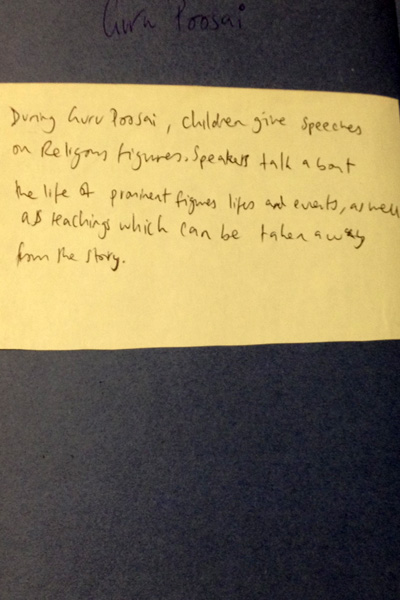 Guru Poosai
During Guru Poosai, children give speeches
on Religous figures. Speakers talk about
the life of prominent figures lifes and events, as well
as teachings which can be taken away
from the story.